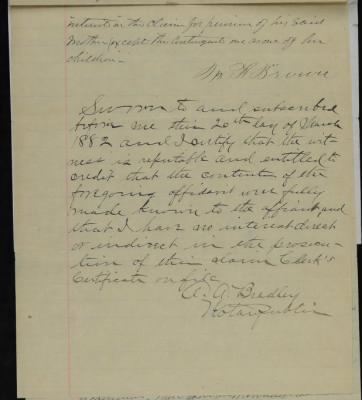 interest in the claim for pension of his said
Mother, except the contingent one as one of her
children.
Wm H Brown
Sworn to and subscribed
before me this 20th day of March
1882 and I certify that the wit-
ness is reputable and entitled to
credit that the contents of the
foregoing affidavit were fully
made known to the affiant, and
that I have no interest direct
or indirect in the prosecu-
tion of this claim Clerk's
Certificate on file
A. A. Bradley
Notary Public